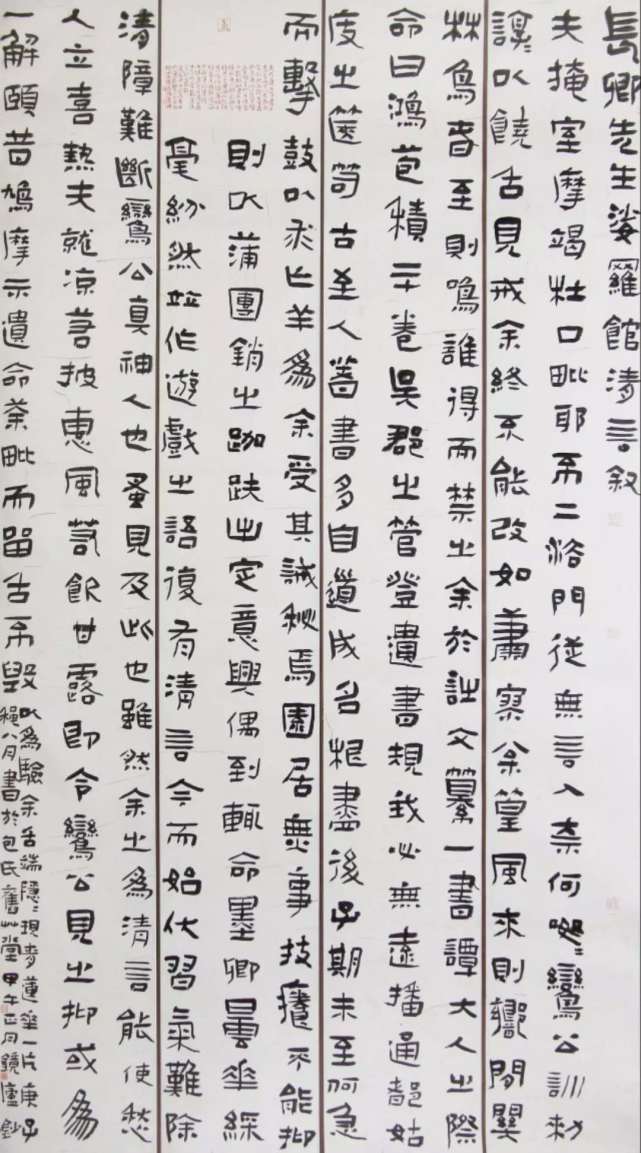 長卿先生娑羅館清言敘
夫掩室摩竭杜口毗耶不二法門從無言入柰何鸞公訓勑
以饒舌見戒余終不能改如肅寥篁風來則響間關
林鳥春至則鳴誰得而禁之余於註文纂一書譚大人之際
命曰鴻苞積二十卷吳郡之管登遺書規我必無遠播通都姑
度之篋笥古至人著書多自道成名根盡後子期未至何急
而擊鼓以求亡羊為余受其誠秘焉園居無事技癢不能抑
則以蒲團銷之跏趺出定意興偶到輒命墨卿曇華綵
毫紛然並作遊戲之語復有清言今而始代習氣難除
清障難斷鸞公真神人也蚤見及此也雖然余之為清言能使愁
人立喜熱夫就涼若披惠風若飲甘露即令鸞公見之抑或為
一解頤昔鳩摩示遺命荼毗而留舌不毀
以為驗余舌端隱隱現青蓮華一片庚子
穐八月書於包氏舊艸堂甲午正月鏡廬鈔